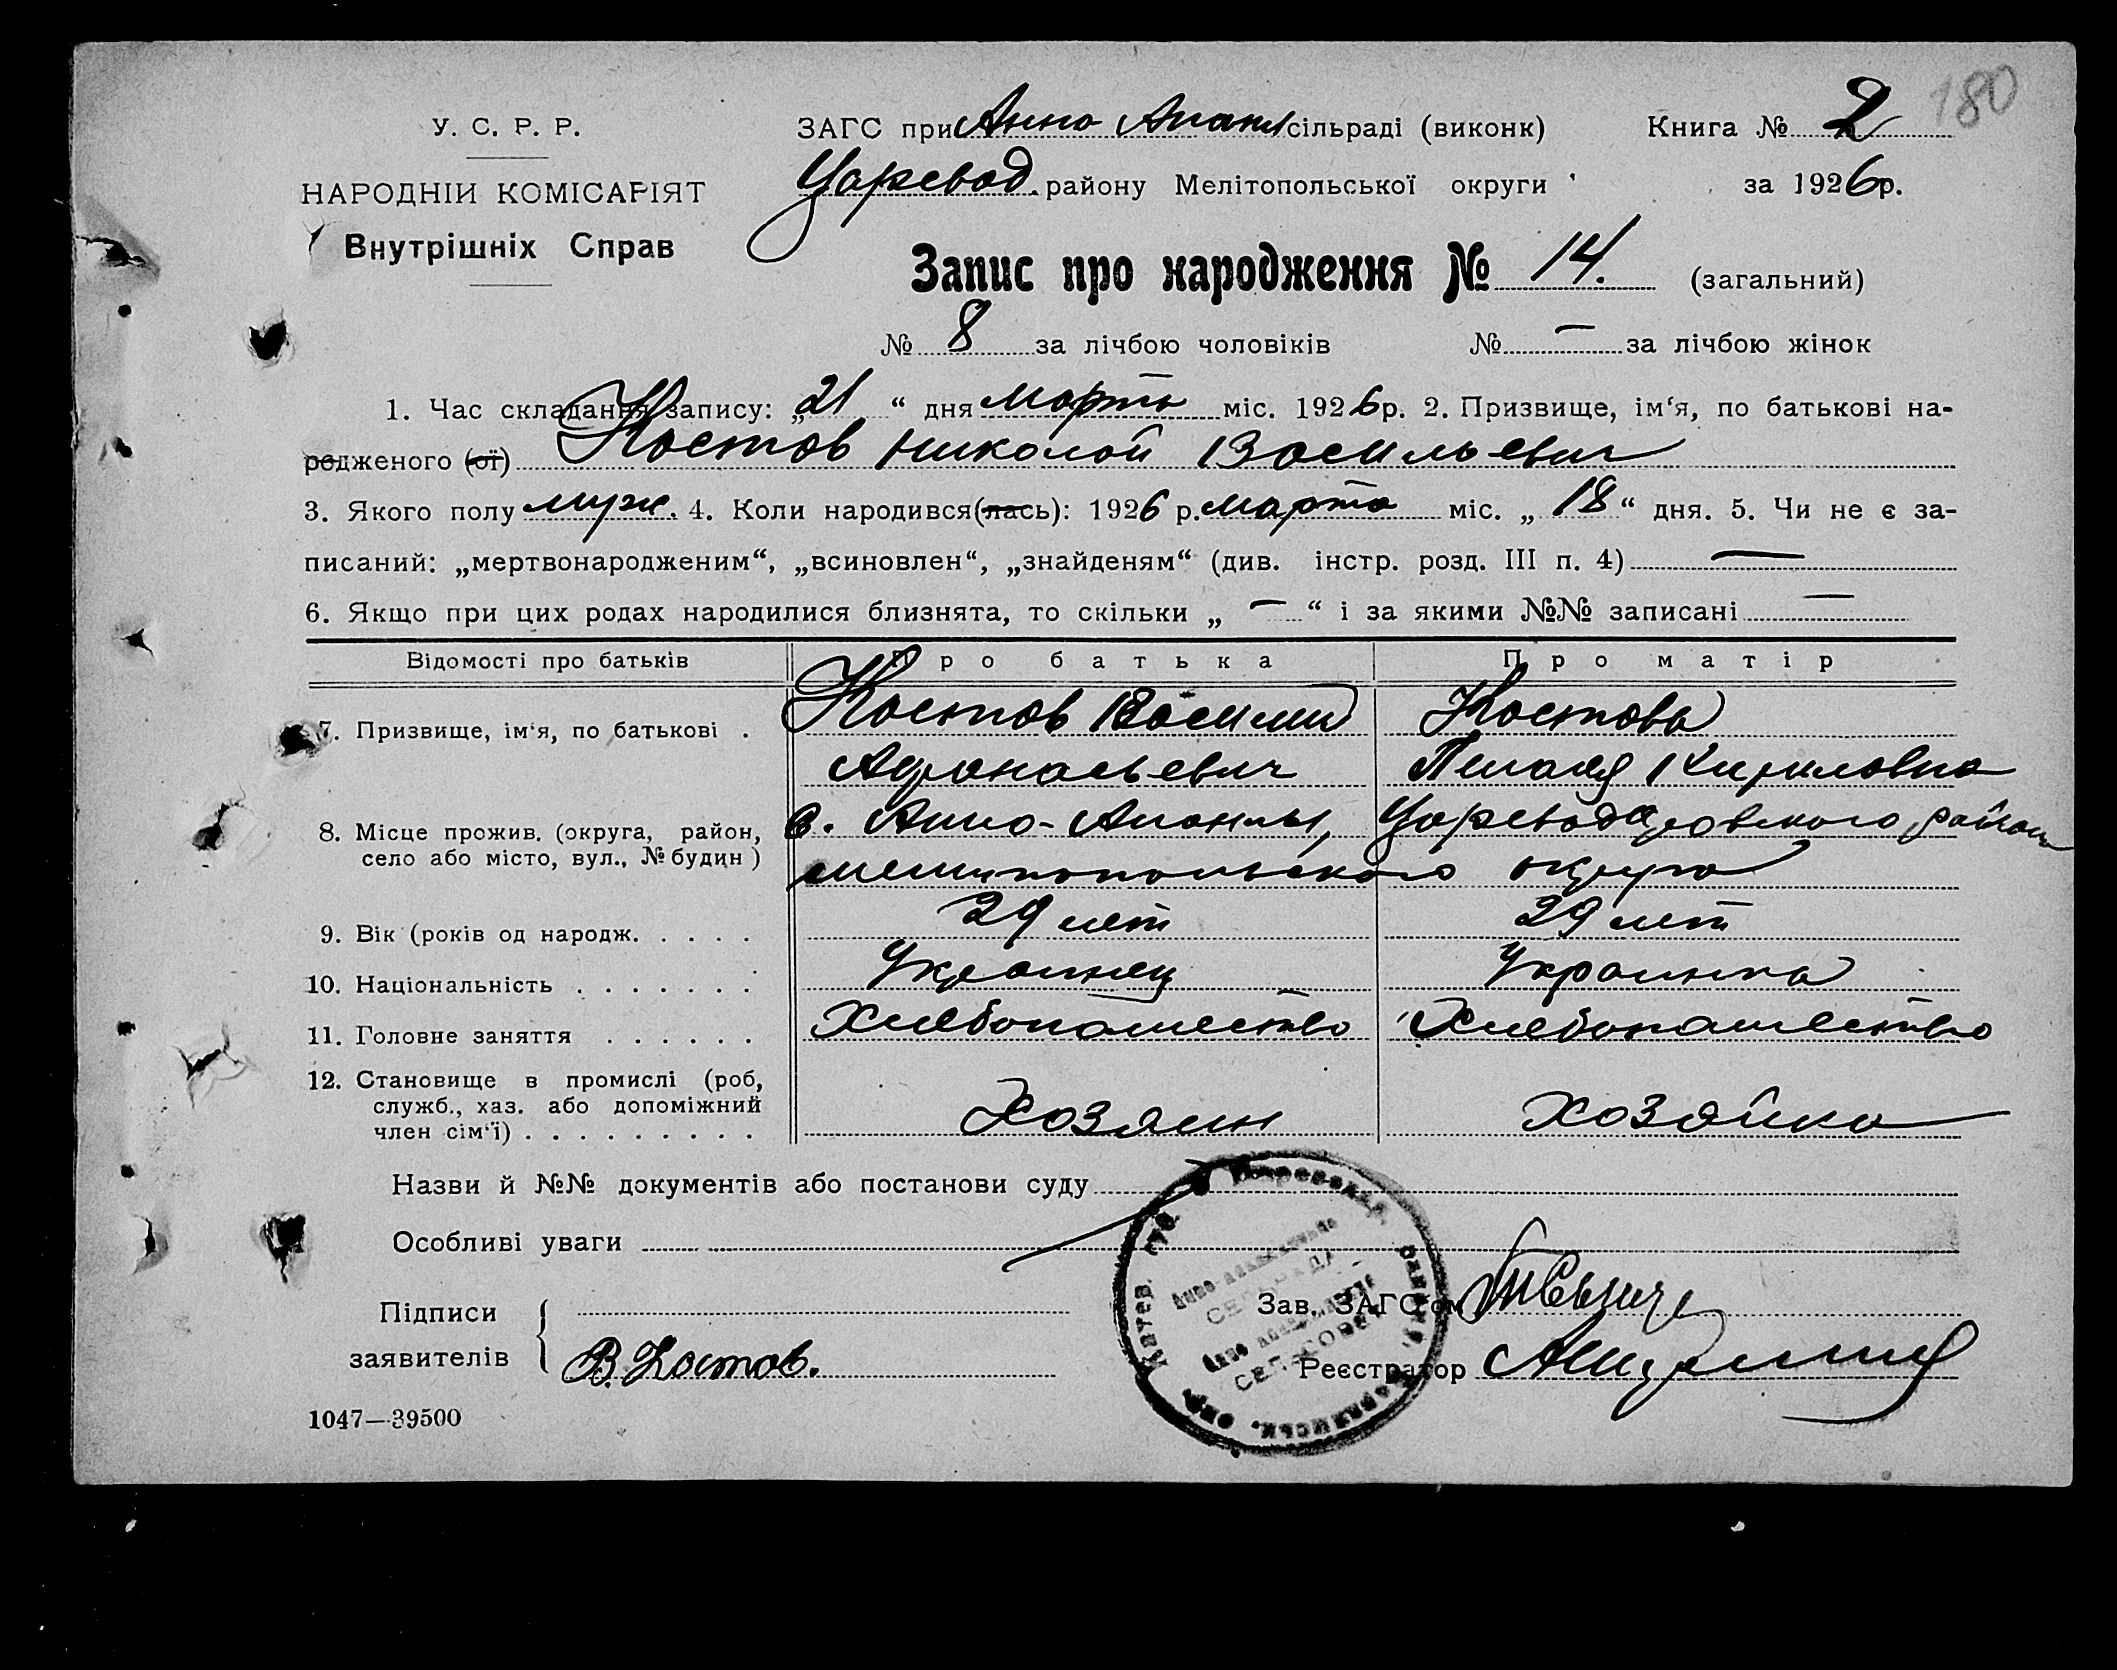 180
У. С. Р. Р.
НАРОДНІЙ КОМІСАРІЯТ
Внутрішніх Справ
ЗАГС при Анно Апанл сільраді (виконк) Книга № 2
Царевод. району Мелітопольської округи за 1926р.
Запис про народження № 14. (загальний)
№ 8 за лічбою чоловіків № — за лічбою жінок
1. Час складання запису: „21“ дня марта міс. 1926р. 2. Призвище, ім‘я, по батькові на-
родженого (ої) Костов Николай Васильевич
3. Якого полу муж. 4. Коли народився(лась): 1926 р. марта міс. „18“ дня. 5. Чи не є за-
писаний: „мертвонародженим“, „всиновлен“, „знайденям“ (див. інстр. розд. III п. 4) —
6. Якщо при цих родах народилися близнята, то скільки „—“ і за якими №№ записані —
Відомості про батьків Про батька Про матір
7. Призвище, ім‘я, по батькові . Костов Василий Костова
Афанасьевич Пелагея Кириловна
8. Місце прожив. (округа, район, с. Анно-Апанлы, Цареводаровского района
село або місто, вул., № будин) мелитопольского округа
9. Вік (років од народж. . . . . 29 лет 29 лет
10. Національність . . . . . . . Украинец Украинка
11. Головне заняття . . . . . . Хлебопашество Хлебопашество
12. Становище в промислі (роб,
служб., хаз. або допоміжний
член сім‘ї) . . . . . . . . . Хозяин Хозяйка
Назви й №№ документів або постанови суду
Особливі уваги
Підписи
заявителів В. Костов.
Зав. ЗАГС‘ом
Реєстратор
СЕЛЬРАДА
СЕЛЬСОВЕТ
1047—39500